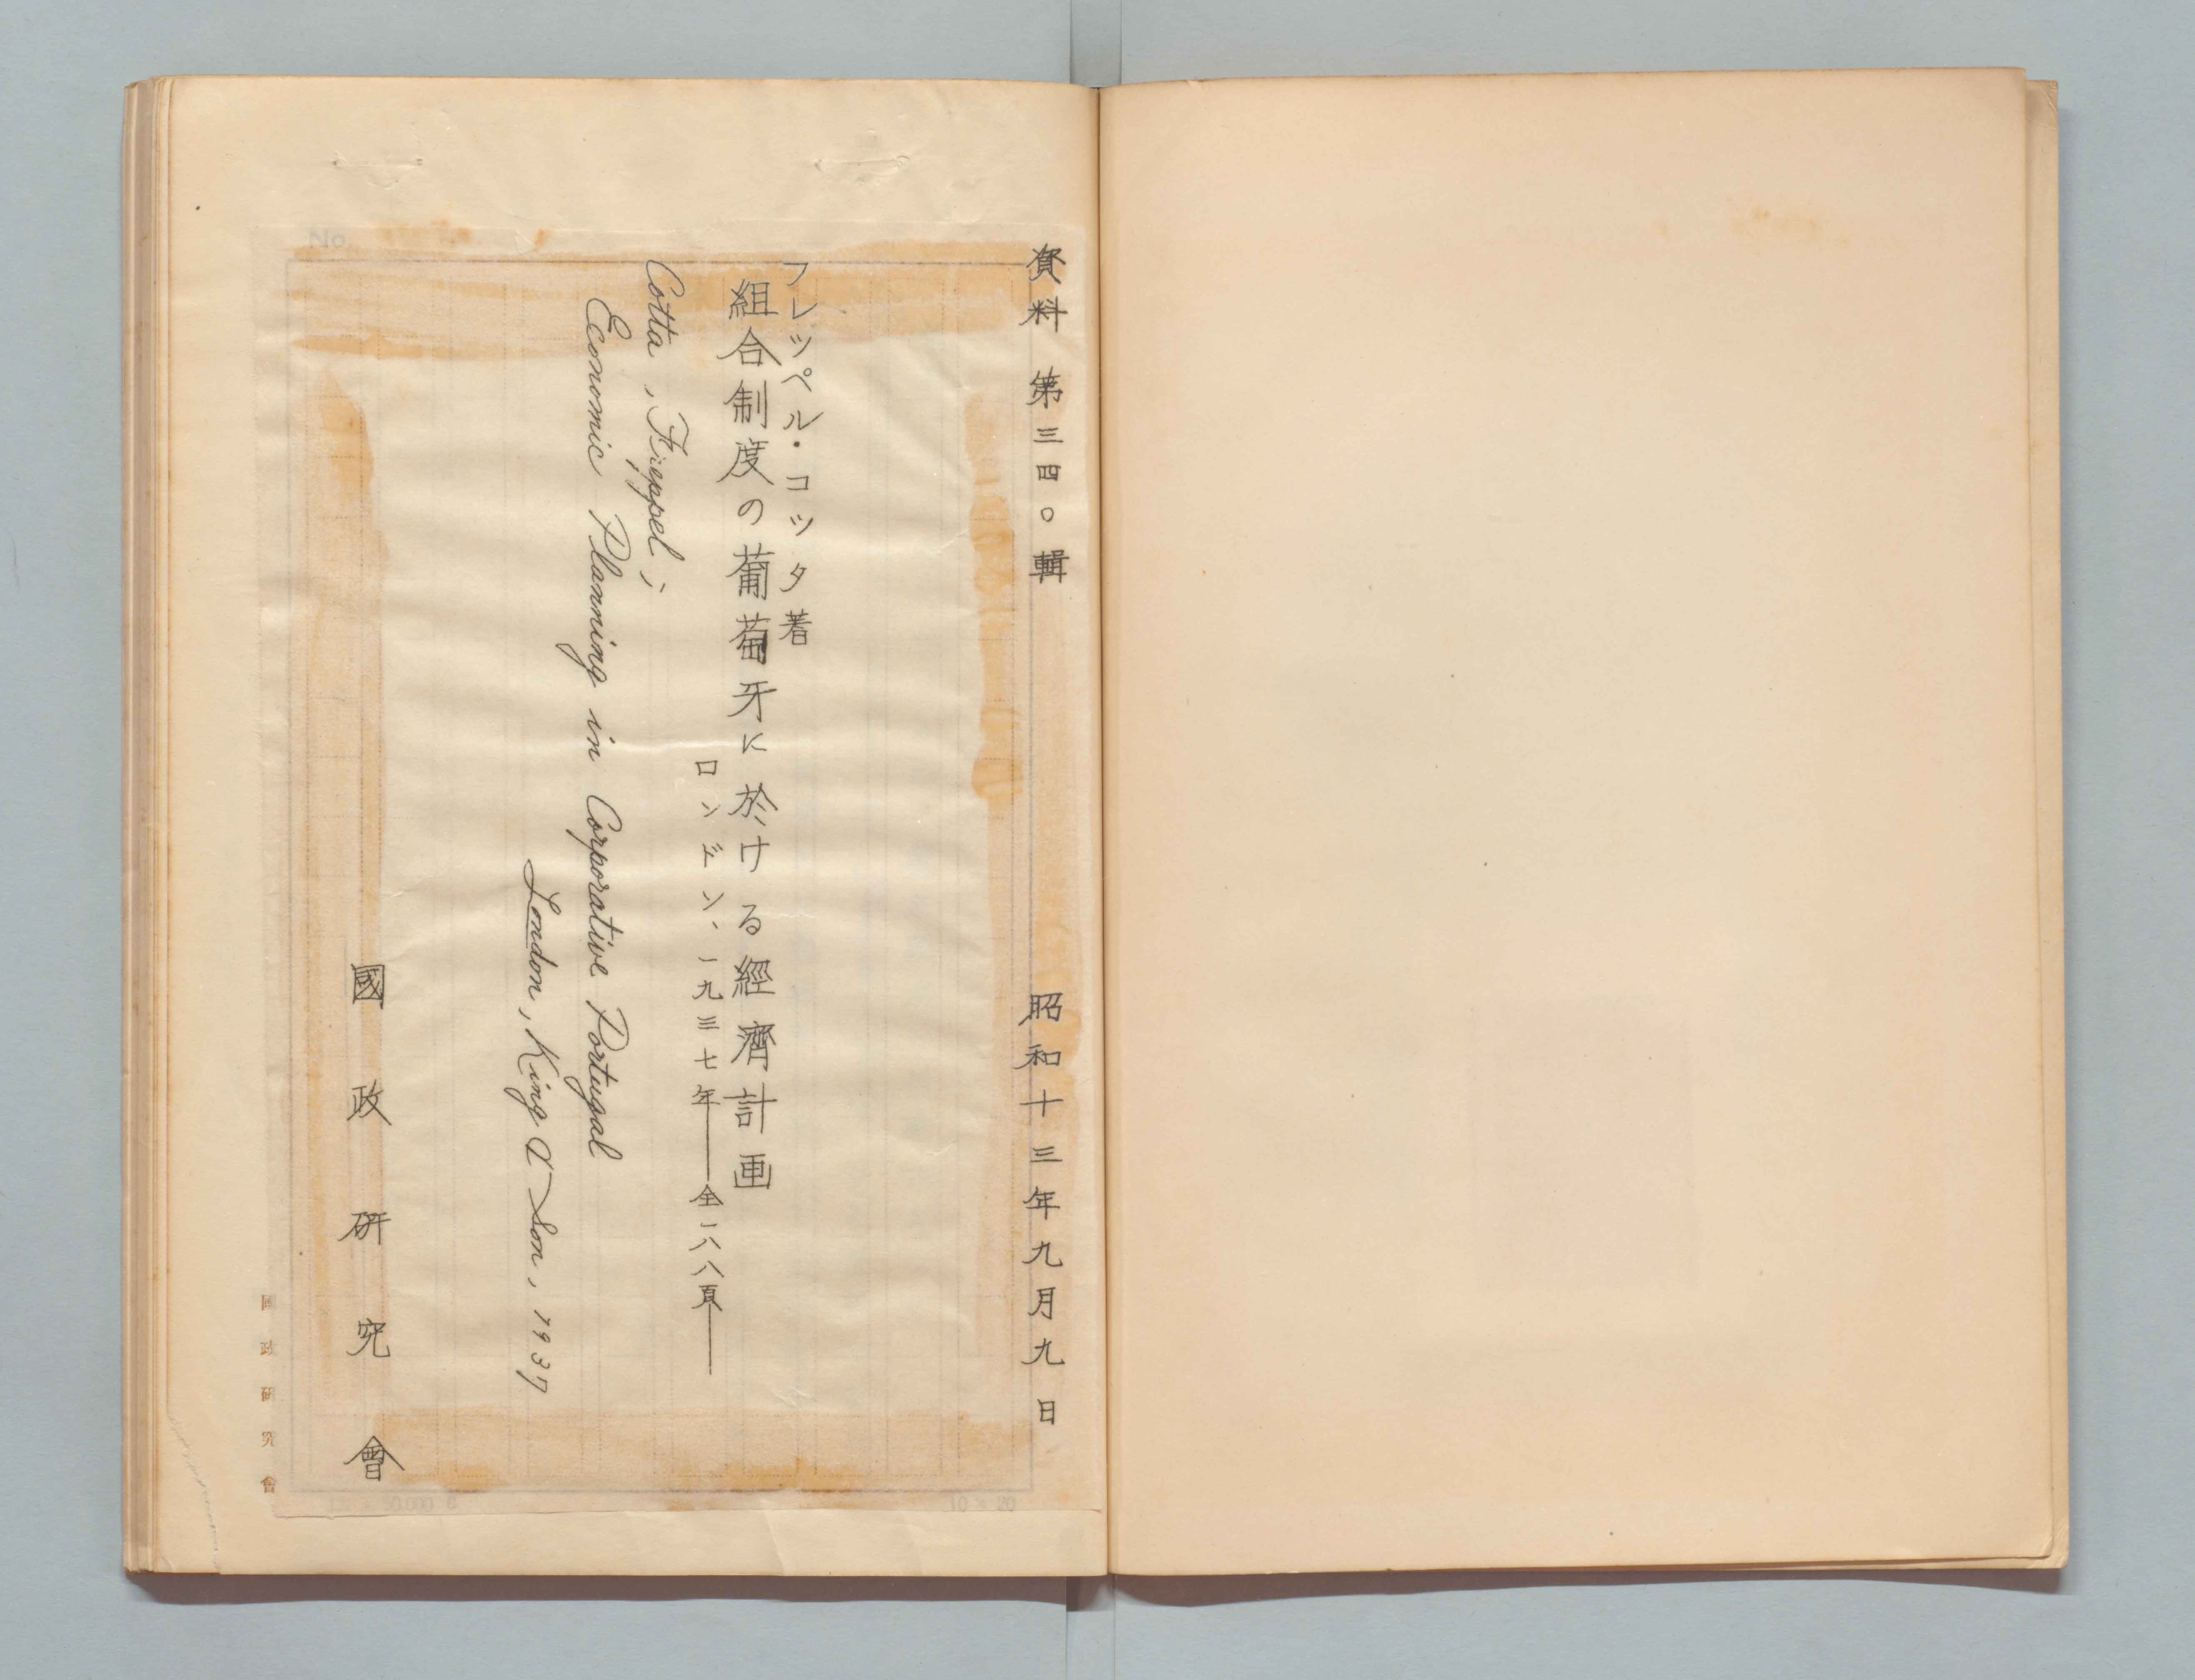 資料 第三四〇輯 昭和十三年九月九日
フレッペル・コッタ著
組合制度の葡萄牙に於ける經濟計画
ロンドン、一九三七年——全一八八頁——
Cotta, Freppel;
Economic Planning in Corporative Portugal
London, King & Son, 1937
國政研究會
國政研究會
No.
10 × 20